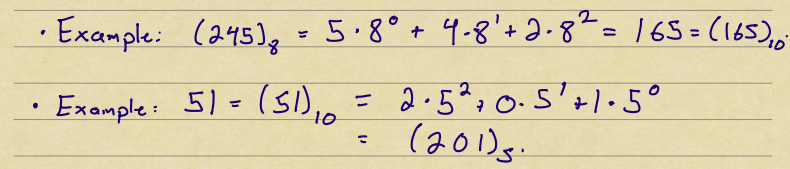 • Example: (245)₈ = 5·8⁰ + 4·8¹ + 2·8² = 165 = (165)₁₀.
• Example: 51 = (51)₁₀ = 2·5² + 0·5¹ + 1·5⁰
= (201)₅.